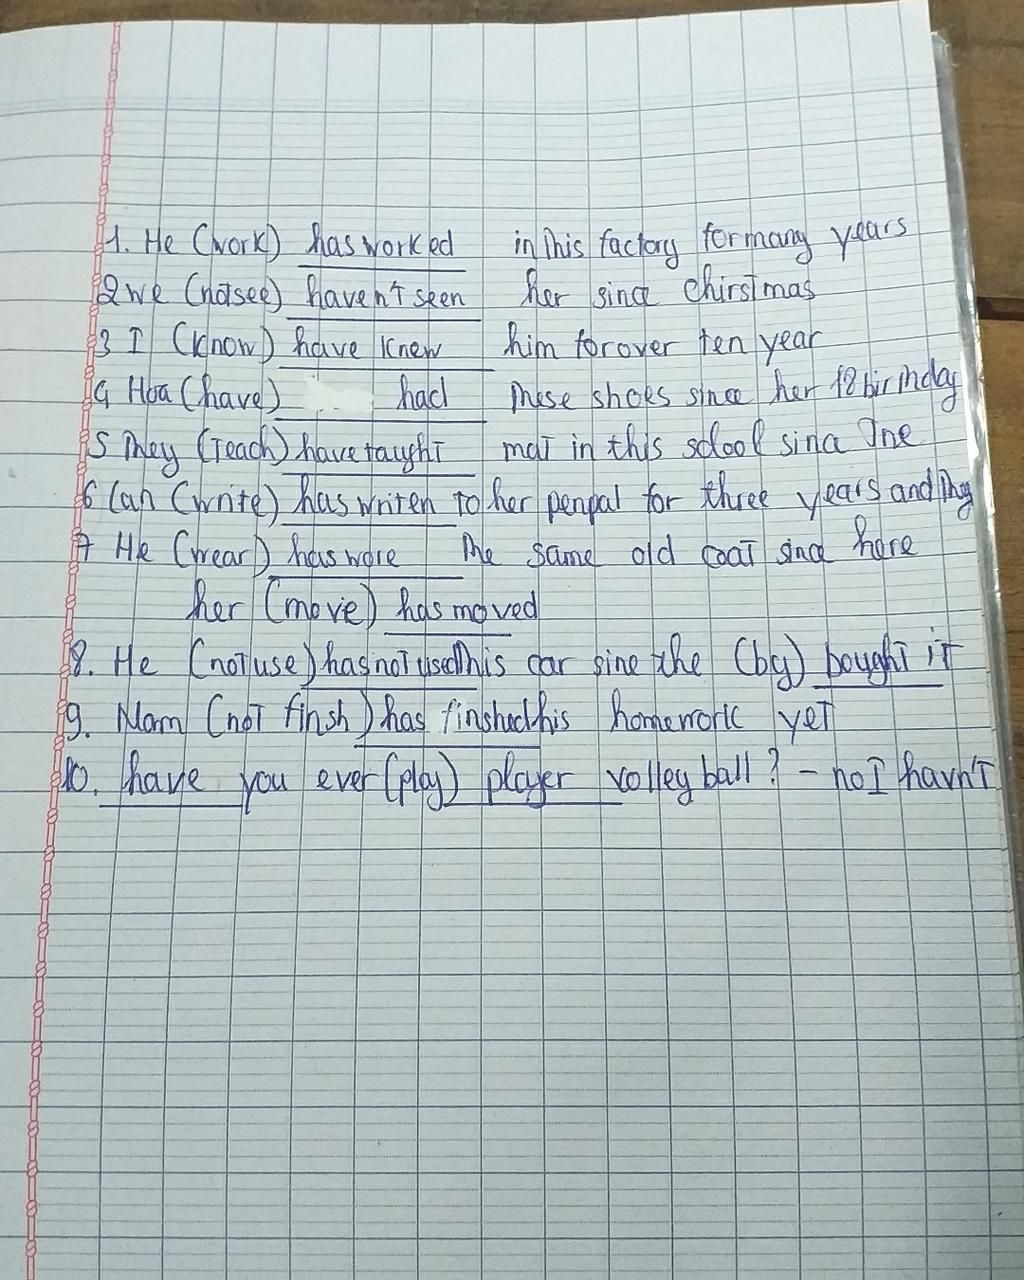 1. He (work) has worked in this factory for many years
2 we (notsee) haven't seen her since chirstmas
3 I (know) have knew him for over ten year
4 Hoa (have) had these shoes since her 18 birthday
5 They (teach) have taught mat in this sclool since
6 Lan (write) has writen to her penpal for three years and they
7 He (wear) has wore the same old coat since here
her (move) has moved
8. He (not use) has not used his car sine the (by) bought it
9. Nam (not finsh) has finshed his homework yet
10. have you ever (play) player volley ball? - no I havn't